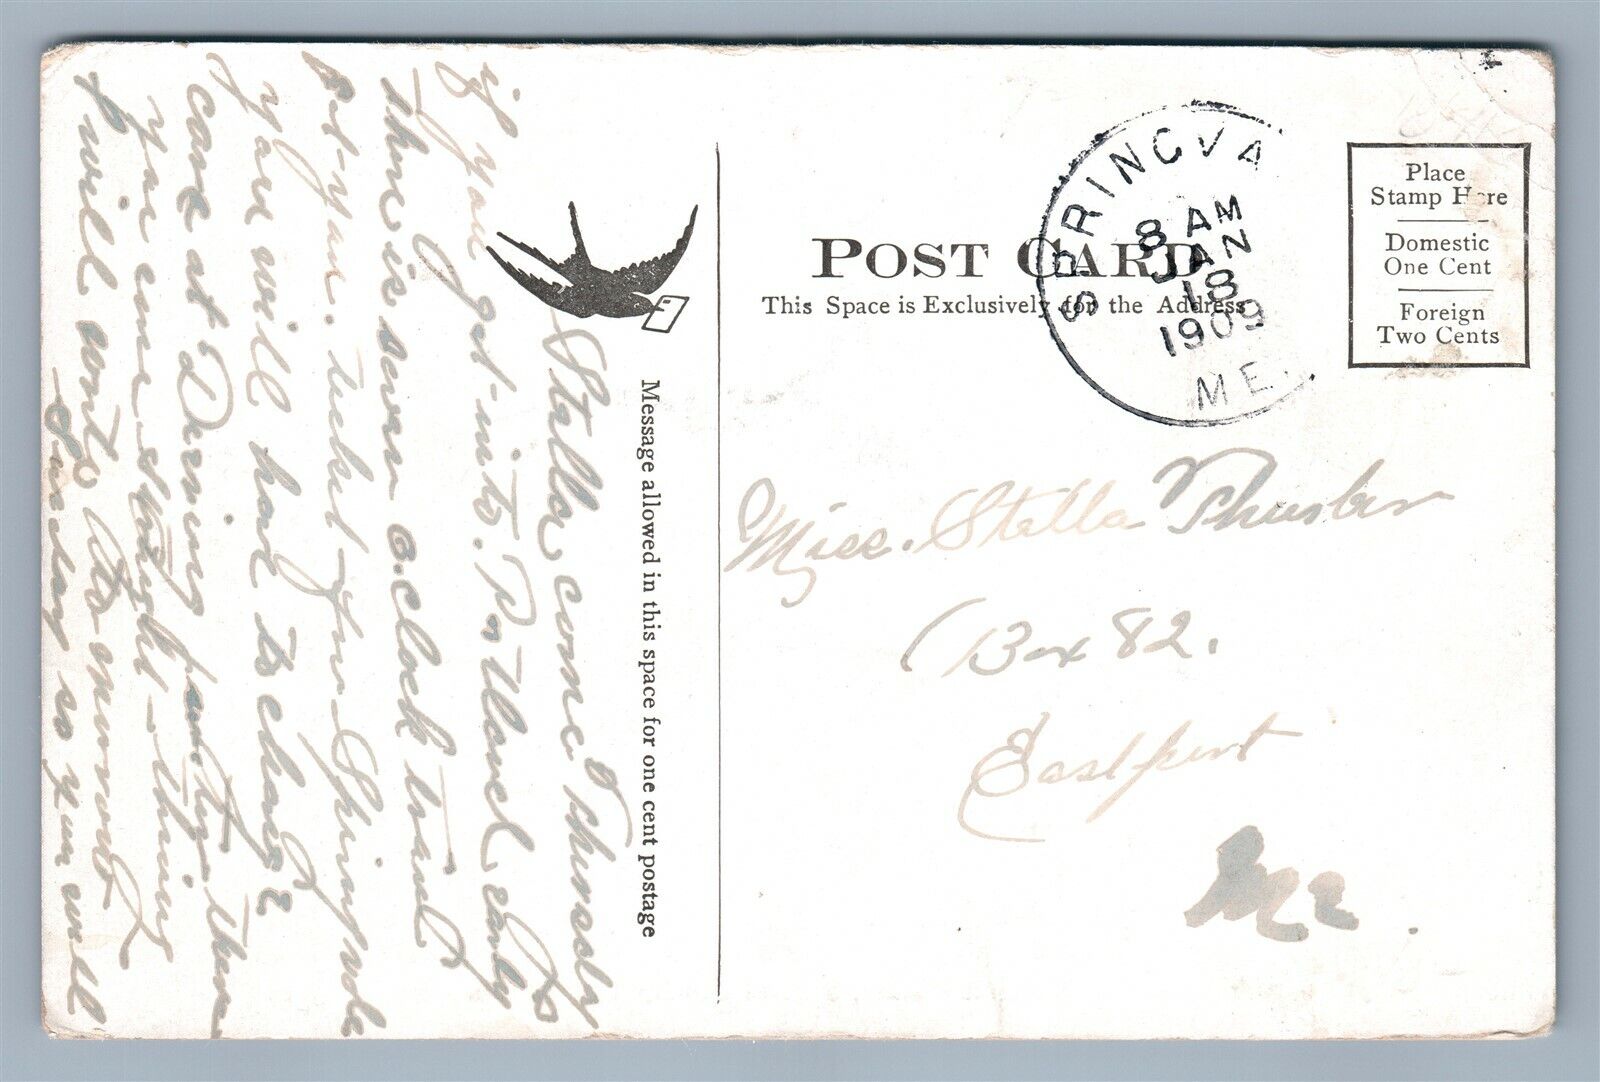 POST CARD
This Space is Exclusively for the Address
SPRINGVA
8 AM
JAN
18
1909
ME.
Place
Stamp Here
Domestic
One Cent
Foreign
Two Cents
Message allowed in this space for one cent postage
Miss. Stella
Box 82.
Eastport
Me.
Stella, come Thursdy
if you get into Portland early
there is seven o.clock train
get your ticket for Springvale
you will have to change
cars at Deering
you come straight
I will wont
Sunday so you will